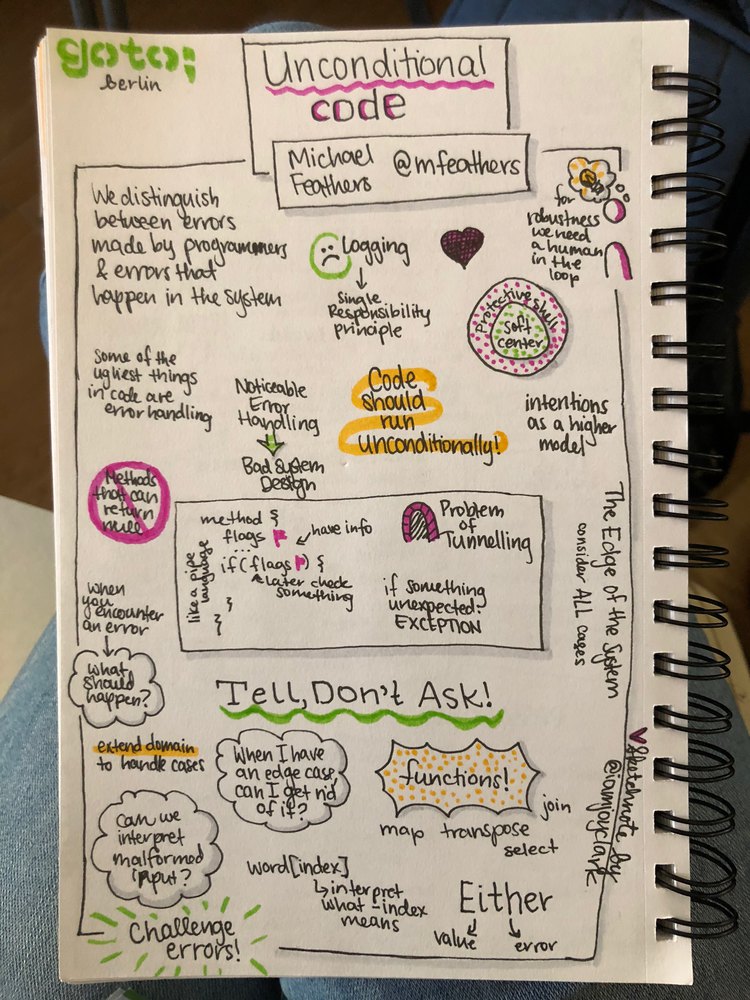 goto;
Berlin
Unconditional
code
Michael
Feathers
@mfeathers
We distinguish
between errors
made by programmers
& errors that
happen in the system
Logging
Single
Responsibility
principle
for
robustness
we need
a human
in the
loop
Protective shell
soft
center
Some of the
ugliest things
in code are
error handling
Noticeable
Error
Handling
Bad System
Design
Code
should
run
unconditionally!
intentions
as a higher
model
Methods
that can
return
null
method {
flags
have info
...
if(flags ) {
later check
something
}
}
like a pipe
language
Problem
of
Tunnelling
if something
unexpected:
EXCEPTION
The Edge of the System
consider ALL cases
when
you
encounter
an error
what
should
happen?
Tell, Don't Ask!
extend domain
to handle cases
When I have
an edge case
can I get rid
of it?
functions!
map transpose
join
select
Can we
interpret
malformed
input?
word[index]
interpret
what -index
means
Either
value
error
Challenge
errors!
Sketchnote by
@iamjoyclark